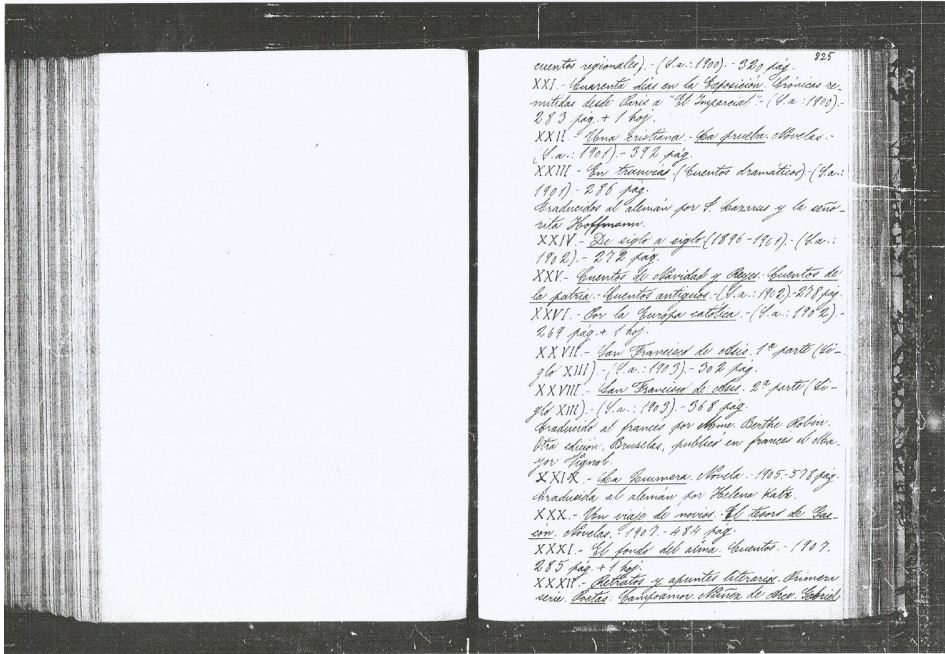 825
cuentos regionales). - (S. a.: 1900). - 320 pág.
XXI. - Cuarenta días en la Exposición. Crónicas re-
mitidas desde París a "El Imparcial". - (S. a.: 1900). -
283 pág. + 1 hoj.
XXII. - Una cristiana. - La prueba. Novelas. -
(S. a.: 1901). - 392 pág.
XXIII. - En tranvías. (Cuentos dramáticos). - (S. a.:
1901). - 286 pág.
Traducidos al alemán por S. Lazarus y la seño-
rita Hoffmann.
XXIV. - De siglo a siglo (1896-1901). - (S. a.:
1902). - 272 pág.
XXV. - Cuentos de Navidad y Reyes. Cuentos de
la patria. - Cuentos antiguos. - (S. a.: 1902). - 278 pág.
XXVI. - Por la Europa católica. - (S. a.: 1902). -
269 pág. + 1 hoj.
XXVII. - San Francisco de Asis. 1ª parte (Si-
glo XIII). - (S. a.: 1903). - 302 pág.
XXVIII. - San Francisco de Asis. 2ª parte (Si-
glo XIII). - (S. a.: 1903). - 368 pág.
Traducido al frances por Mme. Berthe Robin.
Otra edición. Bruselas, publicó en frances el Ma-
yor Vignol.
XXIX. - La Quimera. Novela. - 1905. - 578 pág.
Traducida al alemán por Helena Katz.
XXX. - Un viaje de novios. El tesoro de Gas-
tón. Novelas. - 1907. - 484 pág.
XXXI. - El fondo del alma. Cuentos. - 1907.
285 pág. + 1 hoj.
XXXII. - Retratos y apuntes literarios. Primera
serie. Poetas: Campoamor. Núñez de Arce. Gabriel